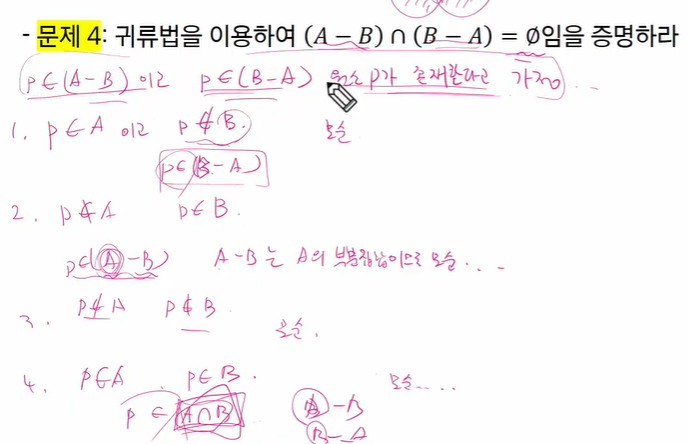 - 문제 4: 귀류법을 이용하여 (A − B) ∩ (B − A) = ∅임을 증명하라
p∈(A−B) 이고 p∈(B−A) 원소 p가 존재한다고 가정...
1. p∈A 이고 p∉B. 모순
p∈(B−A)
2. p∉A p∈B.
p∈(A−B) A−B는 A의 부분집합이므로 모순...
3. p∉A p∉B. 모순.
4. p∈A, p∈B. 모순....
p∈ A∩B A−B
B−A